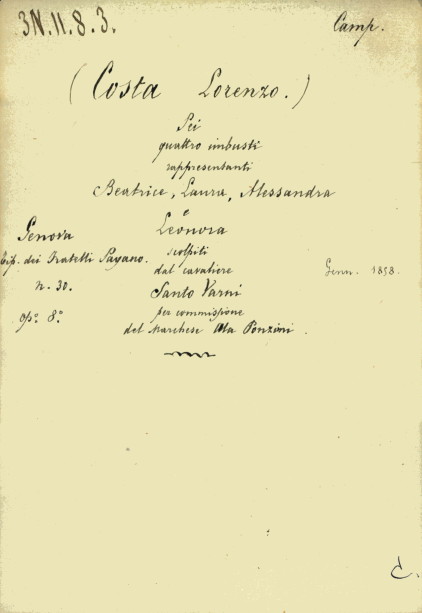 3N.II.8.3.
Camp.
(Costa Lorenzo.)
Pei
quattro imbusti
rappresentanti
Beatrice, Laura, Alessandra
e
Genova Leonora
Tip. dei Fratelli Pagano. scolpiti
dal cavaliere Genn. 1858.
n. 30. Santo Varni
op.° 8.° per commissione
del Marchese Ala Ponzoni.
C.